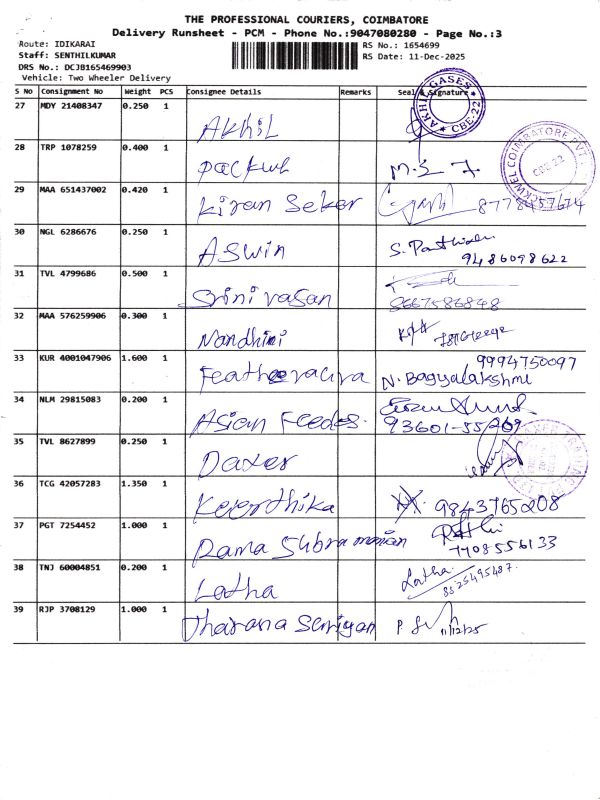 THE PROFESSIONAL COURIERS, COIMBATORE
Delivery Runsheet - PCM - Phone No.:9047080280 - Page No.:3
Route: IDIKARAI RS No.: 1654699
Staff: SENTHILKUMAR RS Date: 11-Dec-2025
DRS No.: DCJB165469903
Vehicle: Two Wheeler Delivery
S No Consignment No Weight PCS Consignee Details Remarks Seal & Signature
27 MDY 21408347 0.250 1 Akhil AKHIL GASES CBE-22
28 TRP 1078259 0.400 1 COIMBATORE PVT CBE-22
29 MAA 651437002 0.420 1 Kiran Seker 8778457674
30 NGL 6286676 0.250 1 Aswin 9486098622
31 TVL 4799686 0.500 1 Srinivasan 8667586848
32 MAA 576259906 0.300 1 Nandhini
33 KUR 4001047906 1.600 1 9994750097
N. Bagyalakshmi
34 NLM 29815083 0.200 1 Asian Feedes.
93601-55269
35 TVL 8627899 0.250 1 Daxer
36 TCG 42057283 1.350 1 Keerthika 9843765208
37 PGT 7254452 1.000 1 Rama Subramanian
7708556133
38 TNJ 60004851 0.200 1 Latha Latha.
8525495487.
39 RJP 3708129 1.000 1 11/12/25